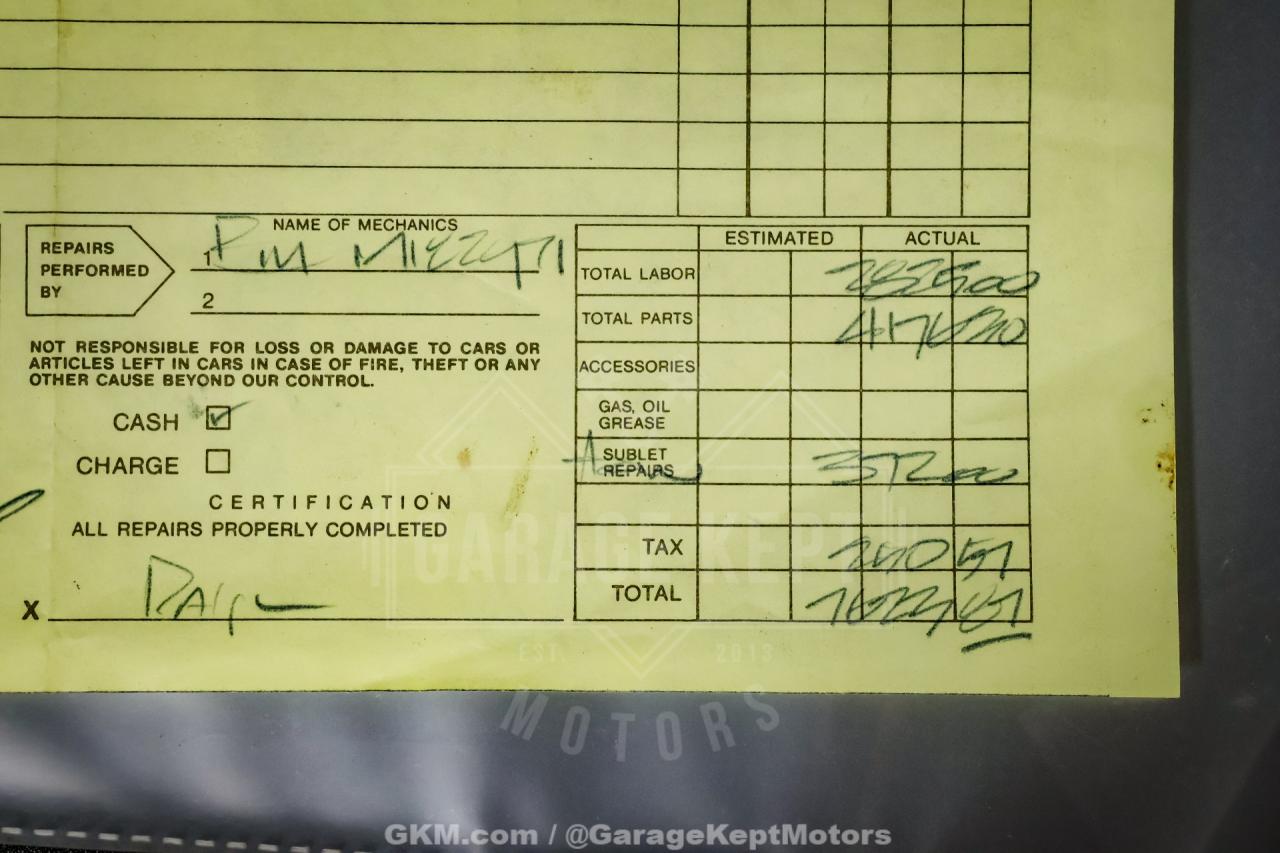 NAME OF MECHANICS
REPAIRS
PERFORMED
BY
1
2
NOT RESPONSIBLE FOR LOSS OR DAMAGE TO CARS OR
ARTICLES LEFT IN CARS IN CASE OF FIRE, THEFT OR ANY
OTHER CAUSE BEYOND OUR CONTROL.
CASH
CHARGE
CERTIFICATION
ALL REPAIRS PROPERLY COMPLETED
X
ESTIMATED ACTUAL
TOTAL LABOR 2825 00
TOTAL PARTS
ACCESSORIES
GAS, OIL
GREASE
SUBLET
REPAIRS 372 00
TAX
TOTAL
GARAGE KEPT
EST. 2013
MOTORS
GKM.com / @GarageKeptMotors